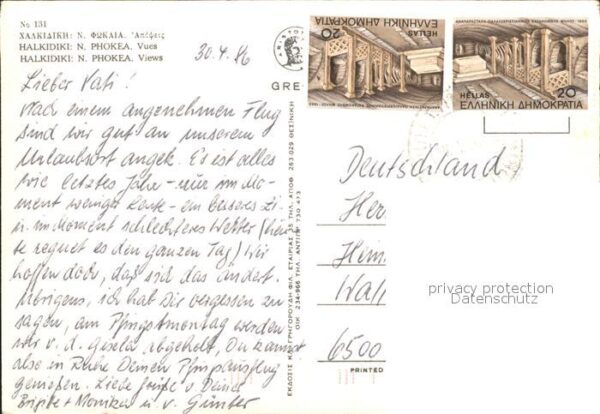 No 131
ΧΑΛΚΙΔΙΚΗ: Ν. ΦΩΚΑΙΑ. Ἀπόψεις
HALKIDIKI: N. PHOKEA. Vues
HALKIDIKI: N. PHOKEA. Views
30.4.86
Lieber Vati!
Nach einem angenehmen Flug
sind wir gut an unserem
Urlaubsort angek. Es ist alles
wie letztes Jahr - nur im Mo-
ment weniger Leute - ein besseres Zi -
u. im Moment schlechteres Wetter (heu-
te regnet es den ganzen Tag) Wir
hoffen doch, daß sich das ändert.
Übrigens, ich hab Dir vergessen zu
sagen, am Pfingstmontag werden
wir v. d. Gisela abgeholt, Du kannst
also in Ruhe Deinen Pfingstausflug
genießen. Liebe Grüße v. Deiner
Brigitte + Monika u. v. Günter
GRE
ΕΚΔΟΣΙΣ ΚΑ ΓΡΗΓΟΡΙΟΥ ΦΙΛ. ΕΤΑΙΡΙΑΣ 35 ΤΗΛ. ΑΠΟΘ 263.029 ΘΕΣ)ΝΙΚΗ
ΟΙΚ 234-966 ΤΗΛ. ΑΝΤΙΠΡ 730.473
20
HELLAS
ΕΛΛΗΝΙΚΗ ΔΗΜΟΚΡΑΤΙΑ
HELLAS
20
ΕΛΛΗΝΙΚΗ ΔΗΜΟΚΡΑΤΙΑ
Deutschland
Her
Hein
Wall
6500
privacy protection
Datenschutz
PRINTED